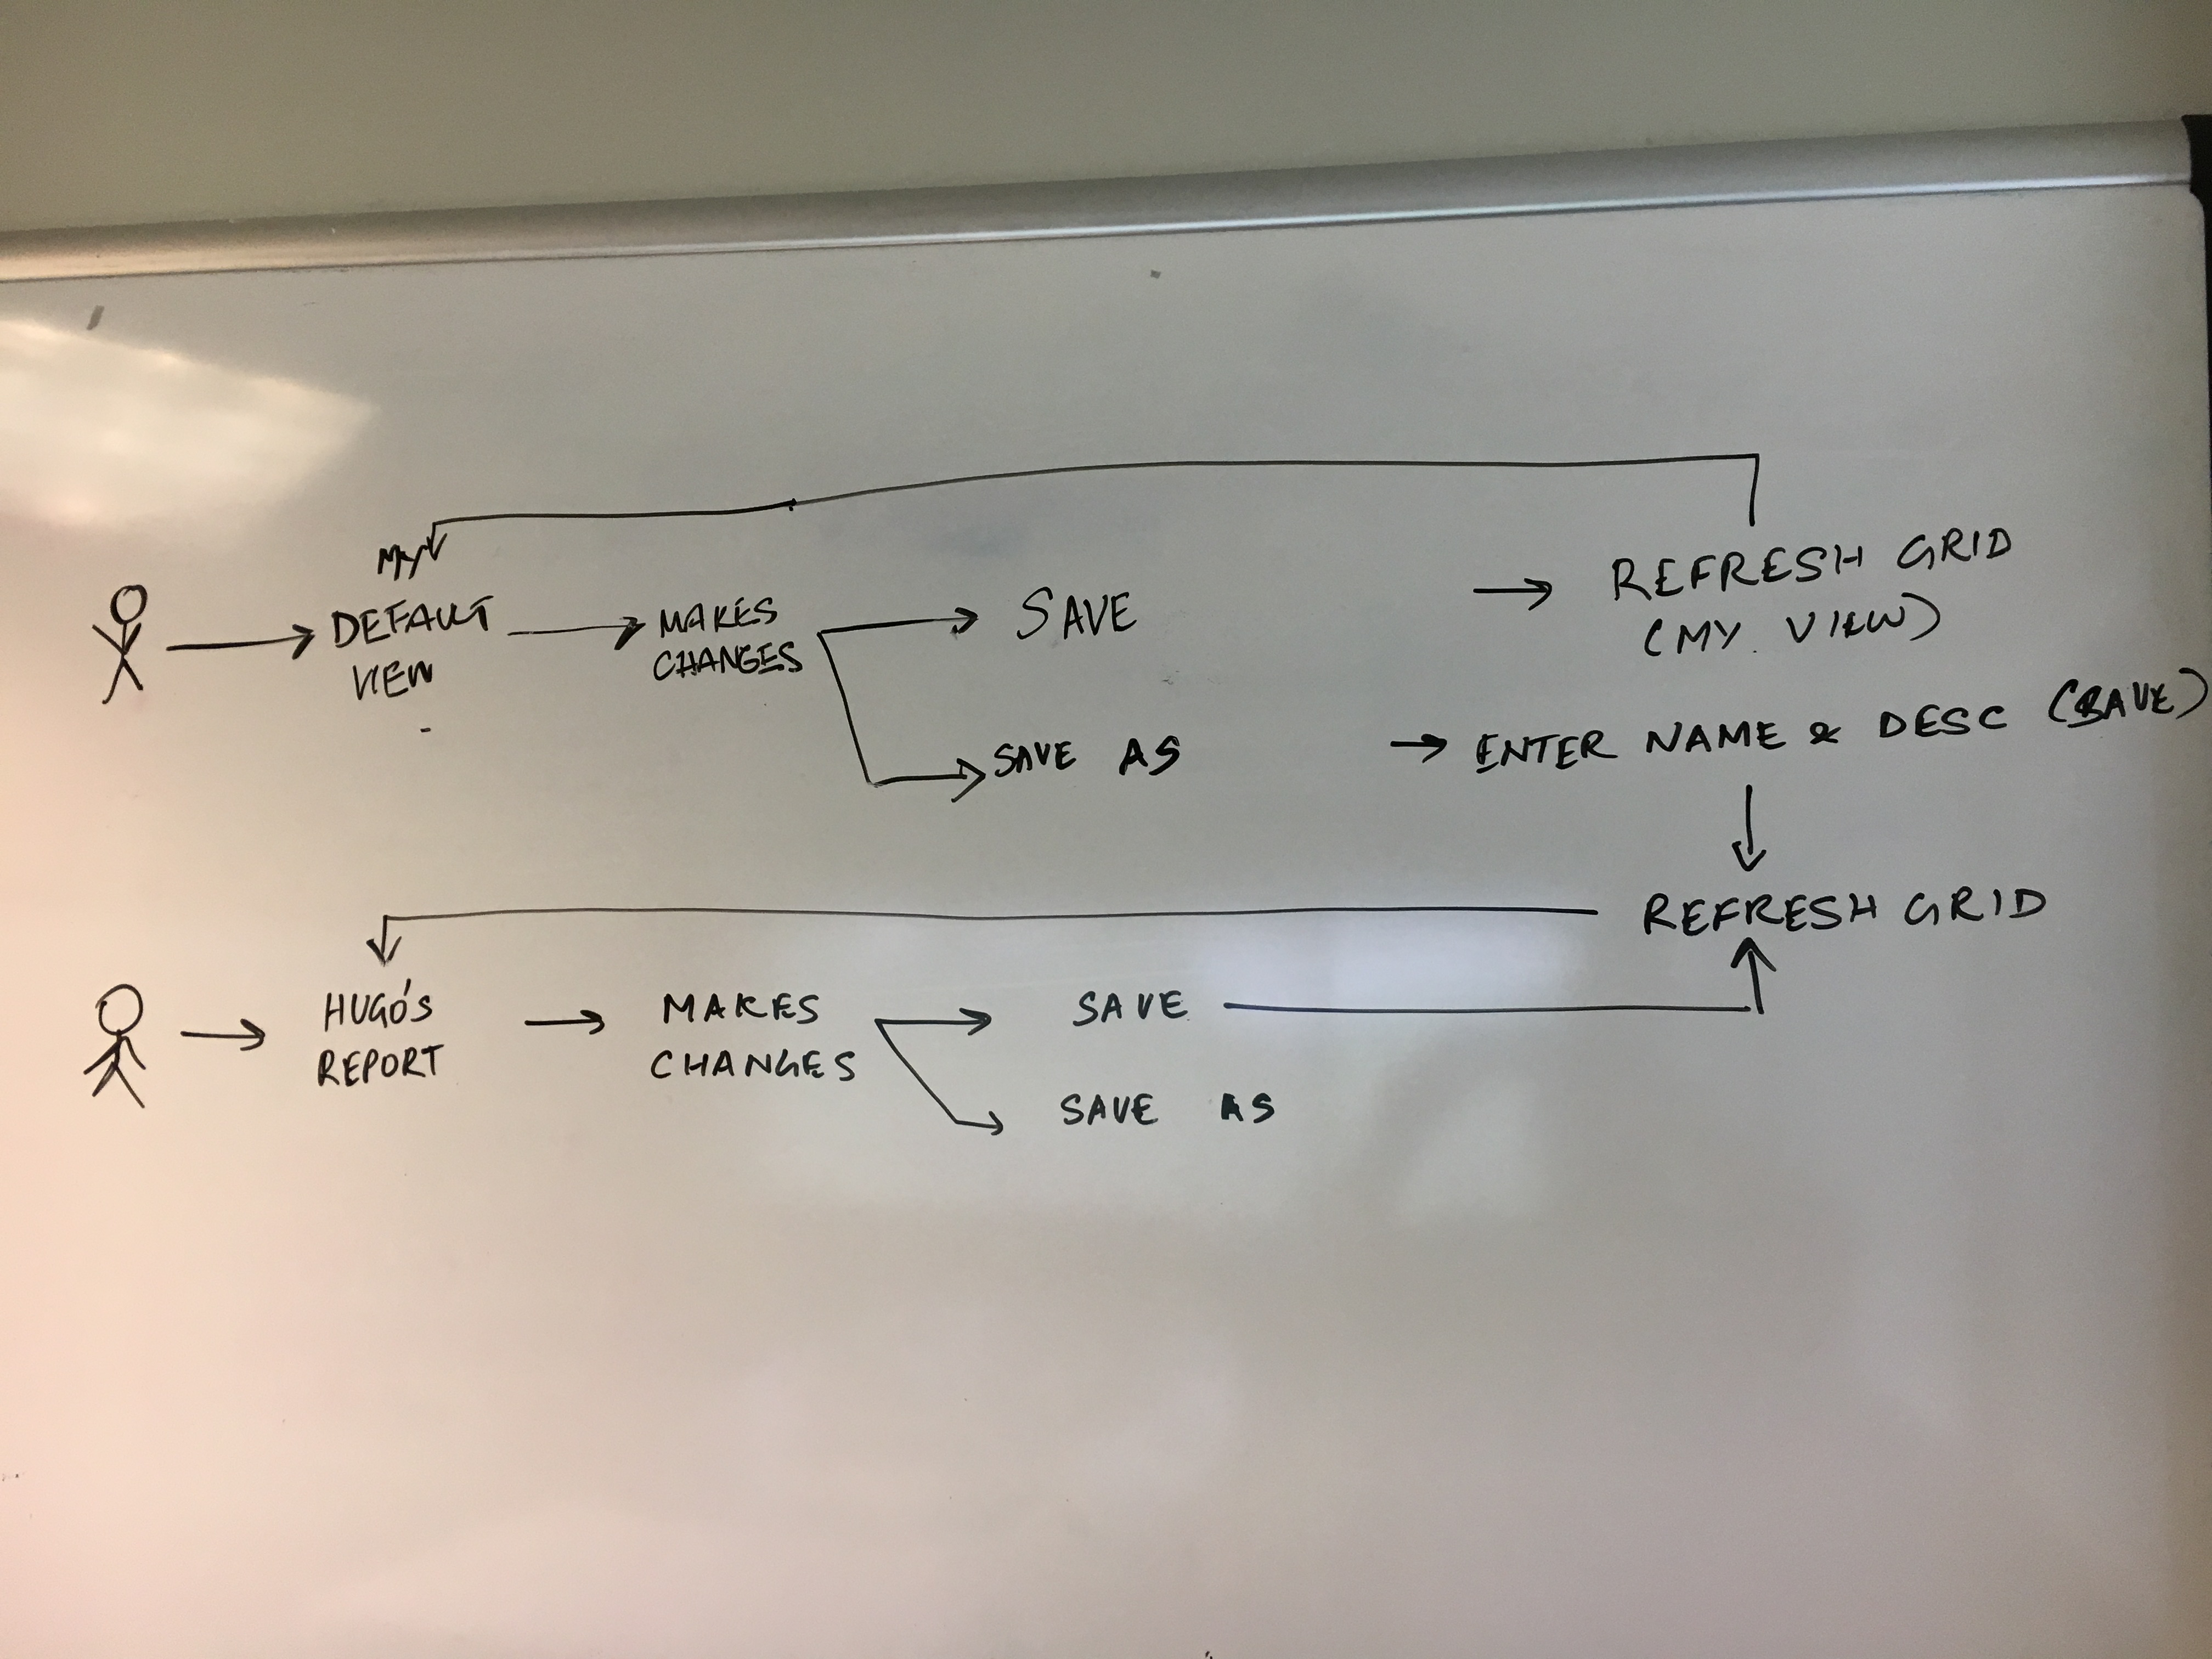 My
DEFAULT
VIEW
MAKES
CHANGES
SAVE
REFRESH GRID
(MY VIEW)
SAVE AS
ENTER NAME & DESC (SAVE)
REFRESH GRID
HUGO'S
REPORT
MAKES
CHANGES
SAVE
SAVE AS